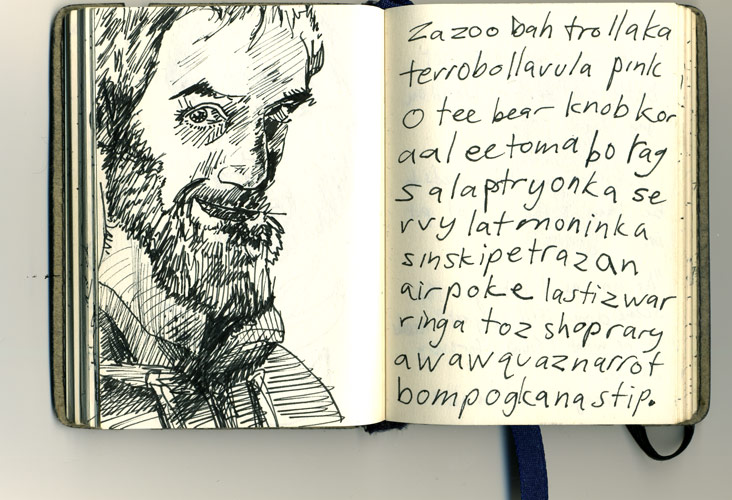 Zazoo bah trollaka
terrobollavula pink
O tee bear knob kor
aal eetoma bo rag
salaptryonka se
rvy latmoninka
sinskipetrazan
airpoke lastizwar
ringa toz shoprary
awawquaznarrot
bompogkanastip.